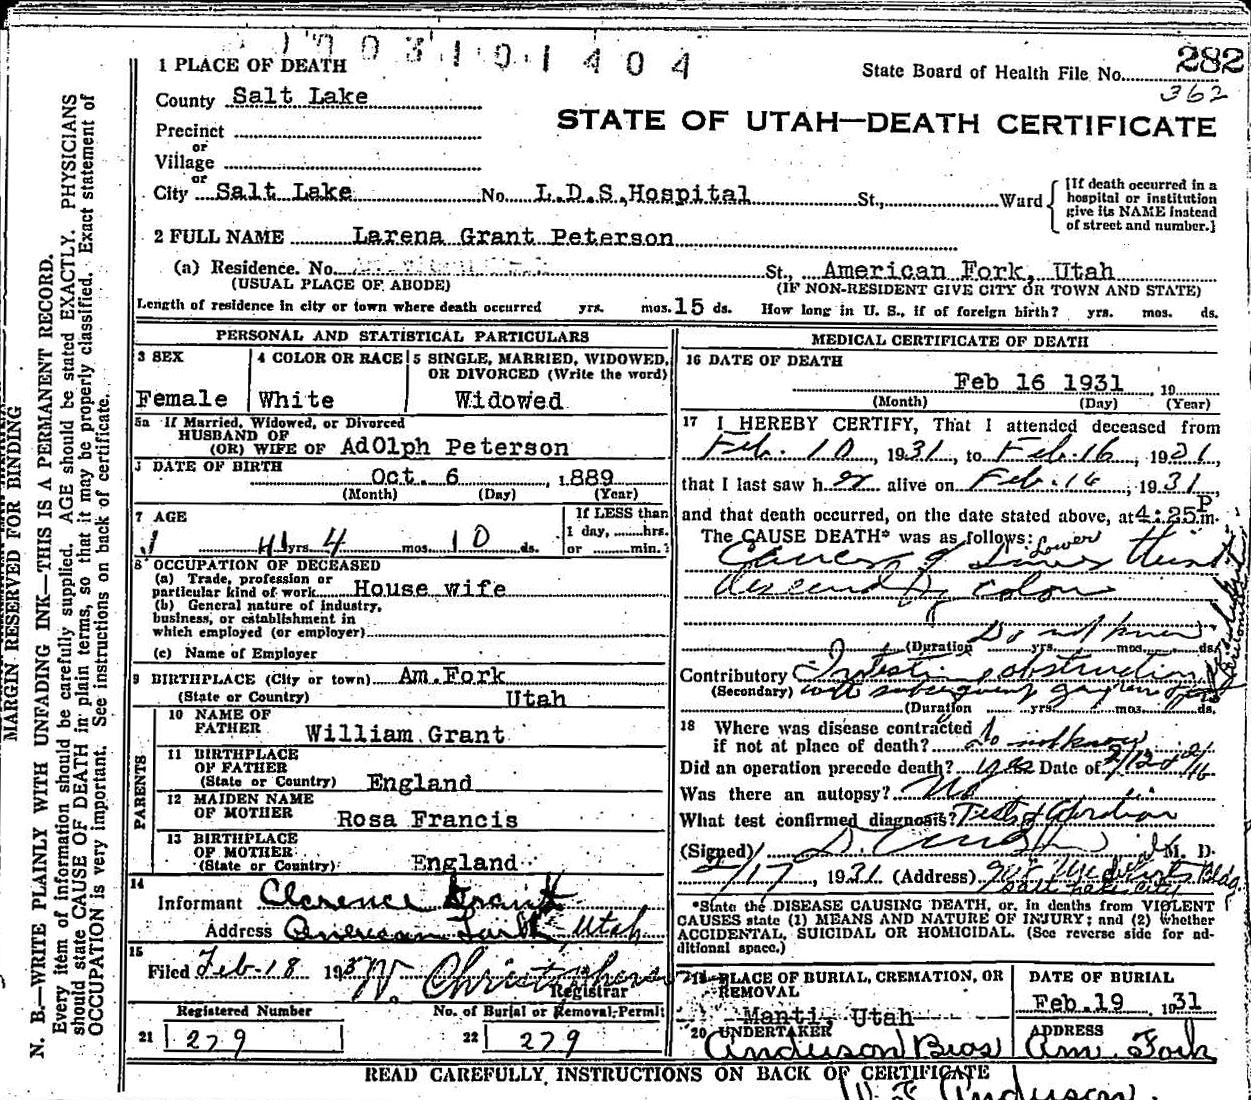 1 7 0 3 1 0 1 4 0 4
282
362
1 PLACE OF DEATH
State Board of Health File No.
County Salt Lake
STATE OF UTAH—DEATH CERTIFICATE
Precinct
or
Village
or
City Salt Lake No. L.D.S. Hospital St., Ward
[If death occurred in a
hospital or institution
give its NAME instead
of street and number.]
2 FULL NAME Larena Grant Peterson
(a) Residence. No. St., American Fork, Utah
(USUAL PLACE OF ABODE) (IF NON-RESIDENT GIVE CITY OR TOWN AND STATE)
Length of residence in city or town where death occurred yrs. mos. 15 ds. How long in U. S., if of foreign birth? yrs. mos. ds.
PERSONAL AND STATISTICAL PARTICULARS
3 SEX
Female
4 COLOR OR RACE
White
5 SINGLE, MARRIED, WIDOWED,
OR DIVORCED (Write the word)
Widowed
5a If Married, Widowed, or Divorced
HUSBAND OF
(OR) WIFE OF AdOlph Peterson
DATE OF BIRTH
Oct. 6, 1889
(Month) (Day) (Year)
7 AGE
41 yrs. 4 mos. 10 ds.
If LESS than
1 day, hrs.
or min.?
8 OCCUPATION OF DECEASED
(a) Trade, profession or
particular kind of work House wife
(b) General nature of industry,
business, or establishment in
which employed (or employer)
(c) Name of Employer
9 BIRTHPLACE (City or town) Am. Fork
(State or Country) Utah
PARENTS
10 NAME OF
FATHER William Grant
11 BIRTHPLACE
OF FATHER
(State or Country) England
12 MAIDEN NAME
OF MOTHER Rosa Francis
13 BIRTHPLACE
OF MOTHER
(State or Country) England
14
Informant Clarence Grant
Address American Fork Utah
15
Filed Feb-18 193 W. Christopherson
Registrar
Registered Number
21 279
No. of Burial or Removal Permit
22 279
MEDICAL CERTIFICATE OF DEATH
16 DATE OF DEATH
Feb 16 1931, 19
(Month) (Day) (Year)
17 I HEREBY CERTIFY, That I attended deceased from
Feb. 10, 1931, to Feb. 16, 1931,
that I last saw her alive on Feb. 16, 1931,
and that death occurred, on the date stated above, at 4:25 P m.
The CAUSE DEATH* was as follows:
Cancer of Lower
colon
Do not know
(Duration yrs. mos. ds.
Contributory obstruction
(Secondary) with subsequent
(Duration yrs. mos. ds.
18 Where was disease contracted
if not at place of death? do not know
Did an operation precede death? yes Date of 2/12 2/16
Was there an autopsy? No
What test confirmed diagnosis?
(Signed) M. D.
2/17, 1931 (Address) Medical Arts Bldg.
Salt Lake City
*State the DISEASE CAUSING DEATH, or, in deaths from VIOLENT
CAUSES state (1) MEANS AND NATURE OF INJURY; and (2) whether
ACCIDENTAL, SUICIDAL OR HOMICIDAL. (See reverse side for ad-
ditional space.)
19 PLACE OF BURIAL, CREMATION, OR
REMOVAL
Manti, Utah
DATE OF BURIAL
Feb. 19, 1931
20 UNDERTAKER
Anderson Bros
ADDRESS
Am. Fork
READ CAREFULLY, INSTRUCTIONS ON BACK OF CERTIFICATE
Anderson.
MARGIN RESERVED FOR BINDING
N. B.—WRITE PLAINLY WITH UNFADING INK—THIS IS A PERMANENT RECORD.
Every item of information should be carefully supplied. AGE should be stated EXACTLY. PHYSICIANS
should state CAUSE OF DEATH in plain terms, so that it may be properly classified. Exact statement of
OCCUPATION is very important. See instructions on back of certificate.